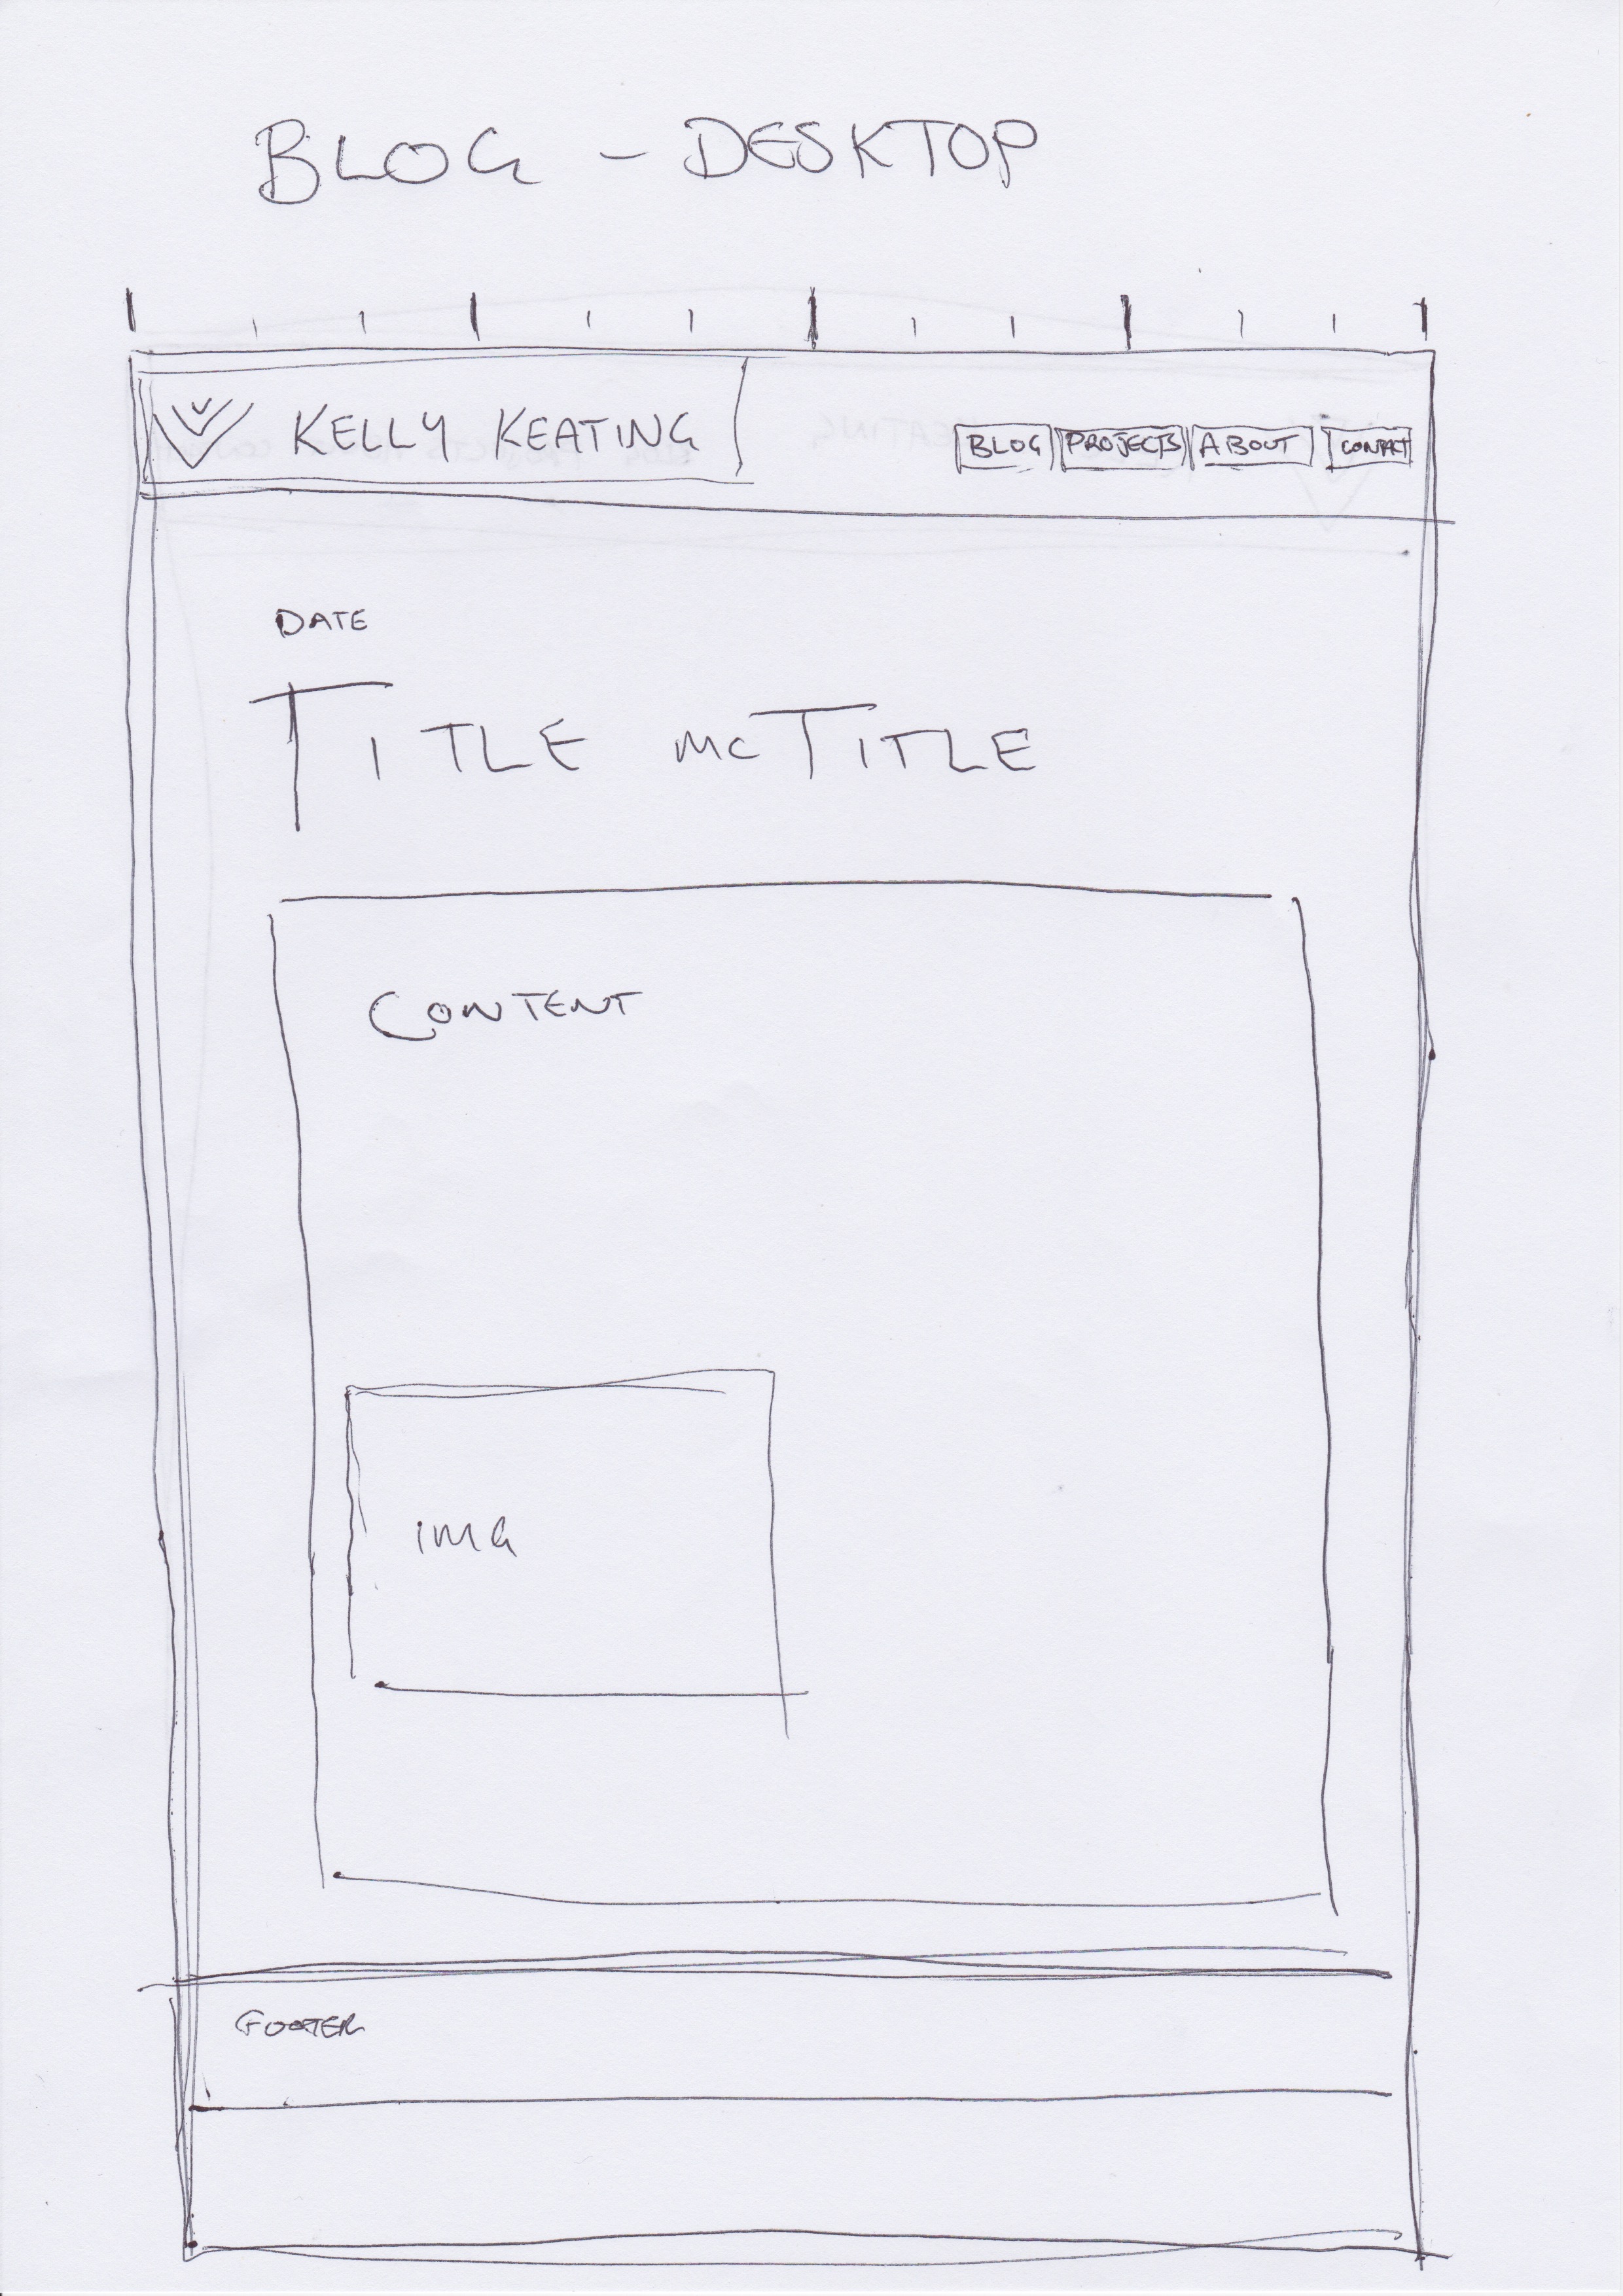 BLOG - DESKTOP
KELLY KEATING
BLOG PROJECTS ABOUT CONTACT
DATE
TITLE McTITLE
CONTENT
IMG
FOOTER